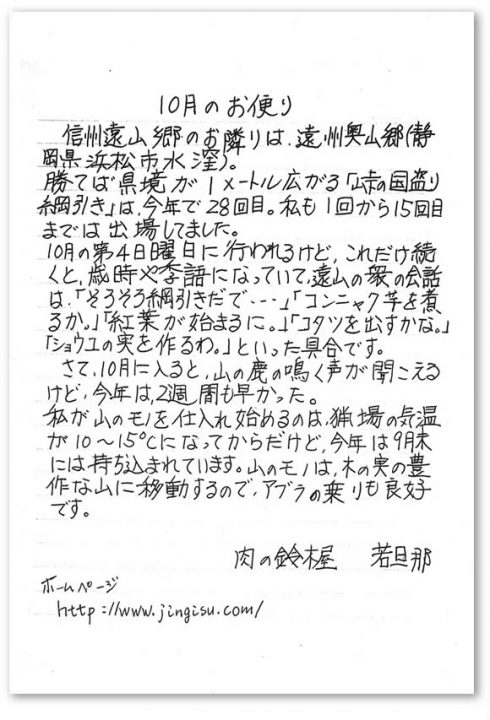 10月のお便り
信州遠山郷のお隣りは、遠州奥山郷(静
岡県浜松市水窪)。
勝てば県境が1メートル広がる「峠の国盗り
綱引き」は、今年で28回目。私も1回から15回目
までは出場してました。
10月の第4日曜日に行われるけど、これだけ続
くと、歳時や季語になっていて、遠山の衆の会話
は、「そろそろ綱引きだで・・・」「コンニャク芋を煮
るか。」「紅葉が始まるに。」「コタツを出すかな。」
「ショウユの実を作るわ。」といった具合です。
さて、10月に入ると、山の鹿の鳴く声が聞こえる
けど、今年は、2週間も早かった。
私が山のモノを仕入れ始めるのは、猟場の気温
が10~15℃になってからだけど、今年は9月末
には持ち込まれています。山のモノは、木の実の豊
作な山に移動するので、アブラの乗りも良好
です。
肉の鈴木屋 若旦那
ホームページ
http://www.jingisu.com/